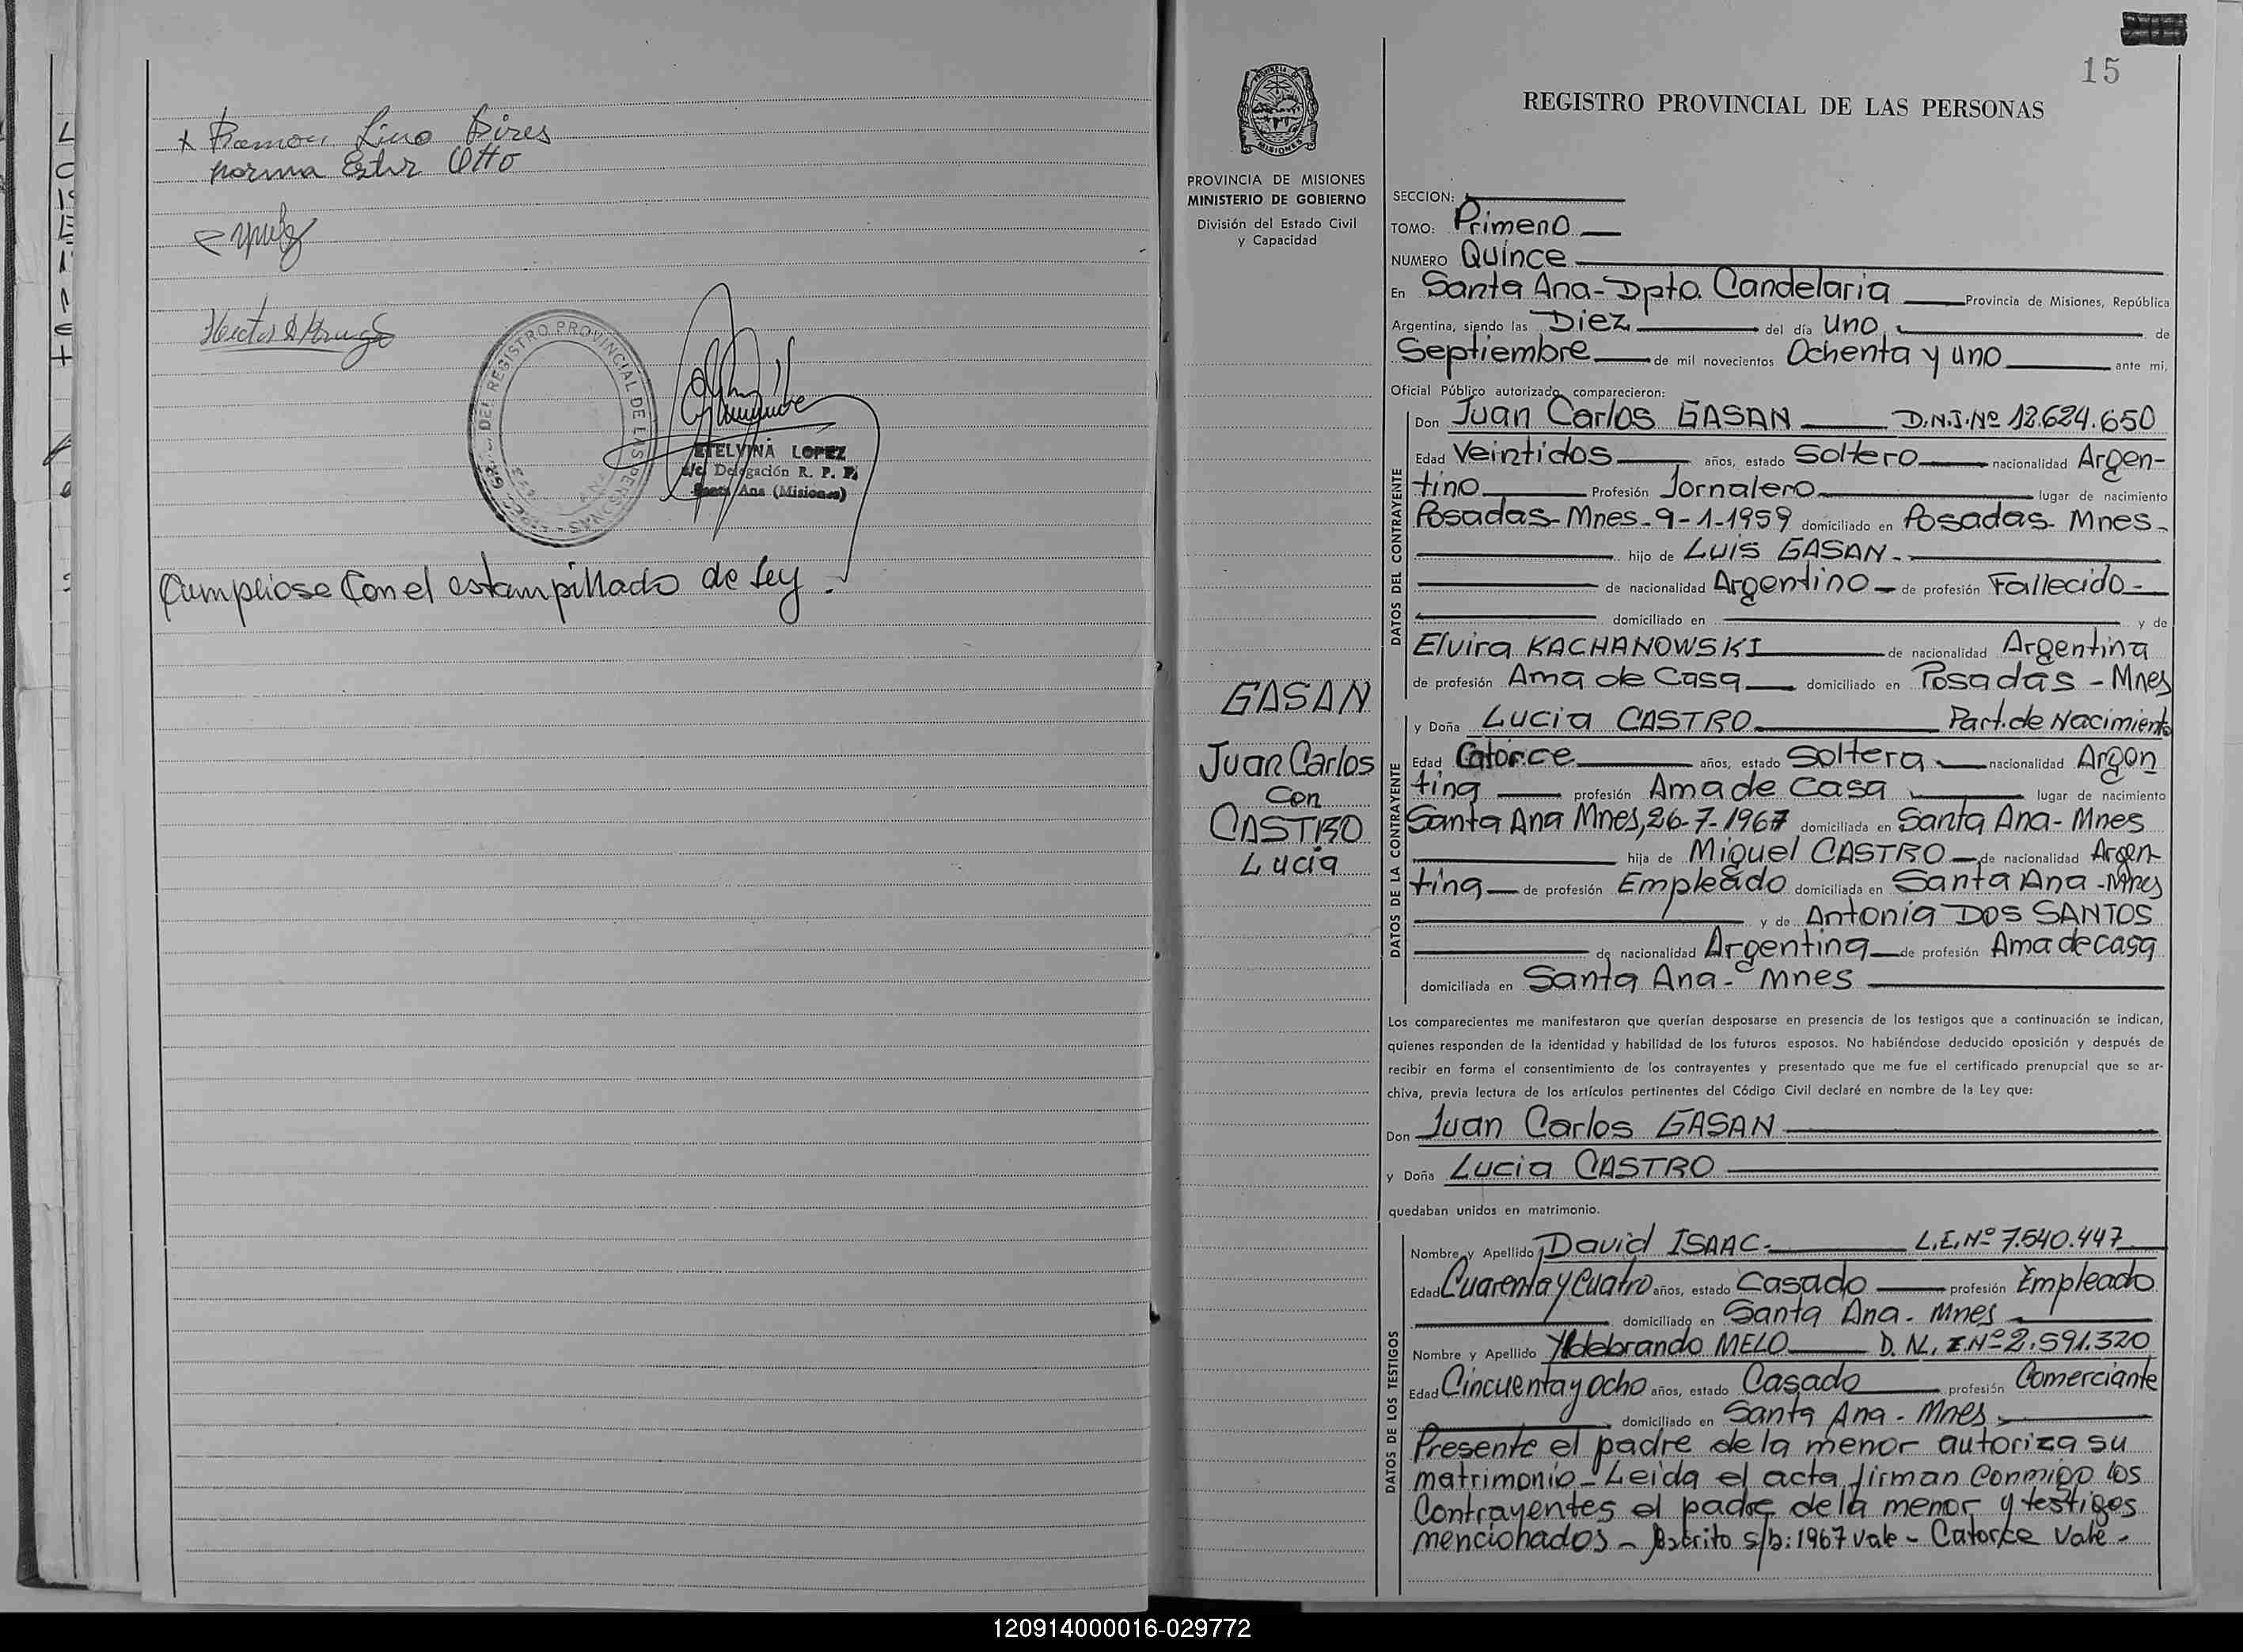 Ramon Lino Pires
Norma Ester Otto
DEL REGISTRO PROVINCIAL DE LAS PERSONAS
ETELVINA LOPEZ
e/c. Delegación R. P. P.
Santa Ana (Misiones)
Cumpliose Con el estampillado de Ley.
15
PROVINCIA DE
MISIONES
REGISTRO PROVINCIAL DE LAS PERSONAS
PROVINCIA DE MISIONES
MINISTERIO DE GOBIERNO
División del Estado Civil
y Capacidad
GASAN
Juan Carlos
Con
CASTRO
Lucia
SECCION:
TOMO: Primero
NUMERO Quince
En Santa Ana-Dpto. Candelaria Provincia de Misiones, República
Argentina, siendo las Diez del día uno de
Septiembre de mil novecientos Ochenta y uno ante mi,
Oficial Público autorizado comparecieron:
DATOS DEL CONTRAYENTE
Don Juan Carlos GASAN D.N.I.Nº 12.624.650
Edad Veintidos años, estado Soltero nacionalidad Argen-
tino Profesión Jornalero lugar de nacimiento
Posadas-Mnes-9-1-1959 domiciliado en Posadas-Mnes-
hijo de Luis GASAN-
de nacionalidad Argentino de profesión Fallecido-
domiciliado en y de
Elvira KACHANOWSKI de nacionalidad Argentina
de profesión Ama de Casa domiciliado en Posadas-Mnes
DATOS DE LA CONTRAYENTE
y Doña Lucia CASTRO Part. de Nacimiento
Edad Catorce años, estado Soltera nacionalidad Argen
tina profesión Ama de Casa lugar de nacimiento
Santa Ana Mnes, 26-7-1967 domiciliada en Santa Ana-Mnes
hija de Miguel CASTRO de nacionalidad Argen
tina de profesión Empleado domiciliada en Santa Ana-Mnes
y de Antonia DOS SANTOS
de nacionalidad Argentina de profesión Ama de casa
domiciliada en Santa Ana-Mnes
Los comparecientes me manifestaron que querían desposarse en presencia de los testigos que a continuación se indican,
quienes responden de la identidad y habilidad de los futuros esposos. No habiéndose deducido oposición y después de
recibir en forma el consentimiento de los contrayentes y presentado que me fue el certificado prenupcial que se ar-
chiva, previa lectura de los artículos pertinentes del Código Civil declaré en nombre de la Ley que:
Don Juan Carlos GASAN
y Doña Lucia CASTRO
quedaban unidos en matrimonio.
DATOS DE LOS TESTIGOS
Nombre y Apellido David ISAAC- L.E.Nº 7.540.447
Edad Cuarenta y Cuatro años, estado Casado profesión Empleado
domiciliado en Santa Ana-Mnes
Nombre y Apellido Yldebrando MELO D.N.I.Nº 2.591.320
Edad Cincuenta y ocho años, estado Casado profesión Comerciante
domiciliado en Santa Ana-Mnes
Presente el padre de la menor autoriza su
matrimonio-Leida el acta firman Conmigo los
Contrayentes el padre de la menor y testigos
mencionados-Escrito s/b: 1967 vale-Catorce Vale-
120914000016-029772